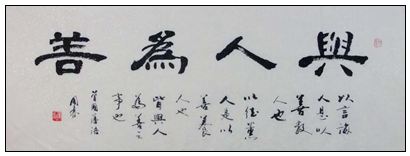 與人為善
以言誨
人是以
善教
人也
以德薰
人是以
善養
人也
皆與人
為善之
事也
曾國藩語